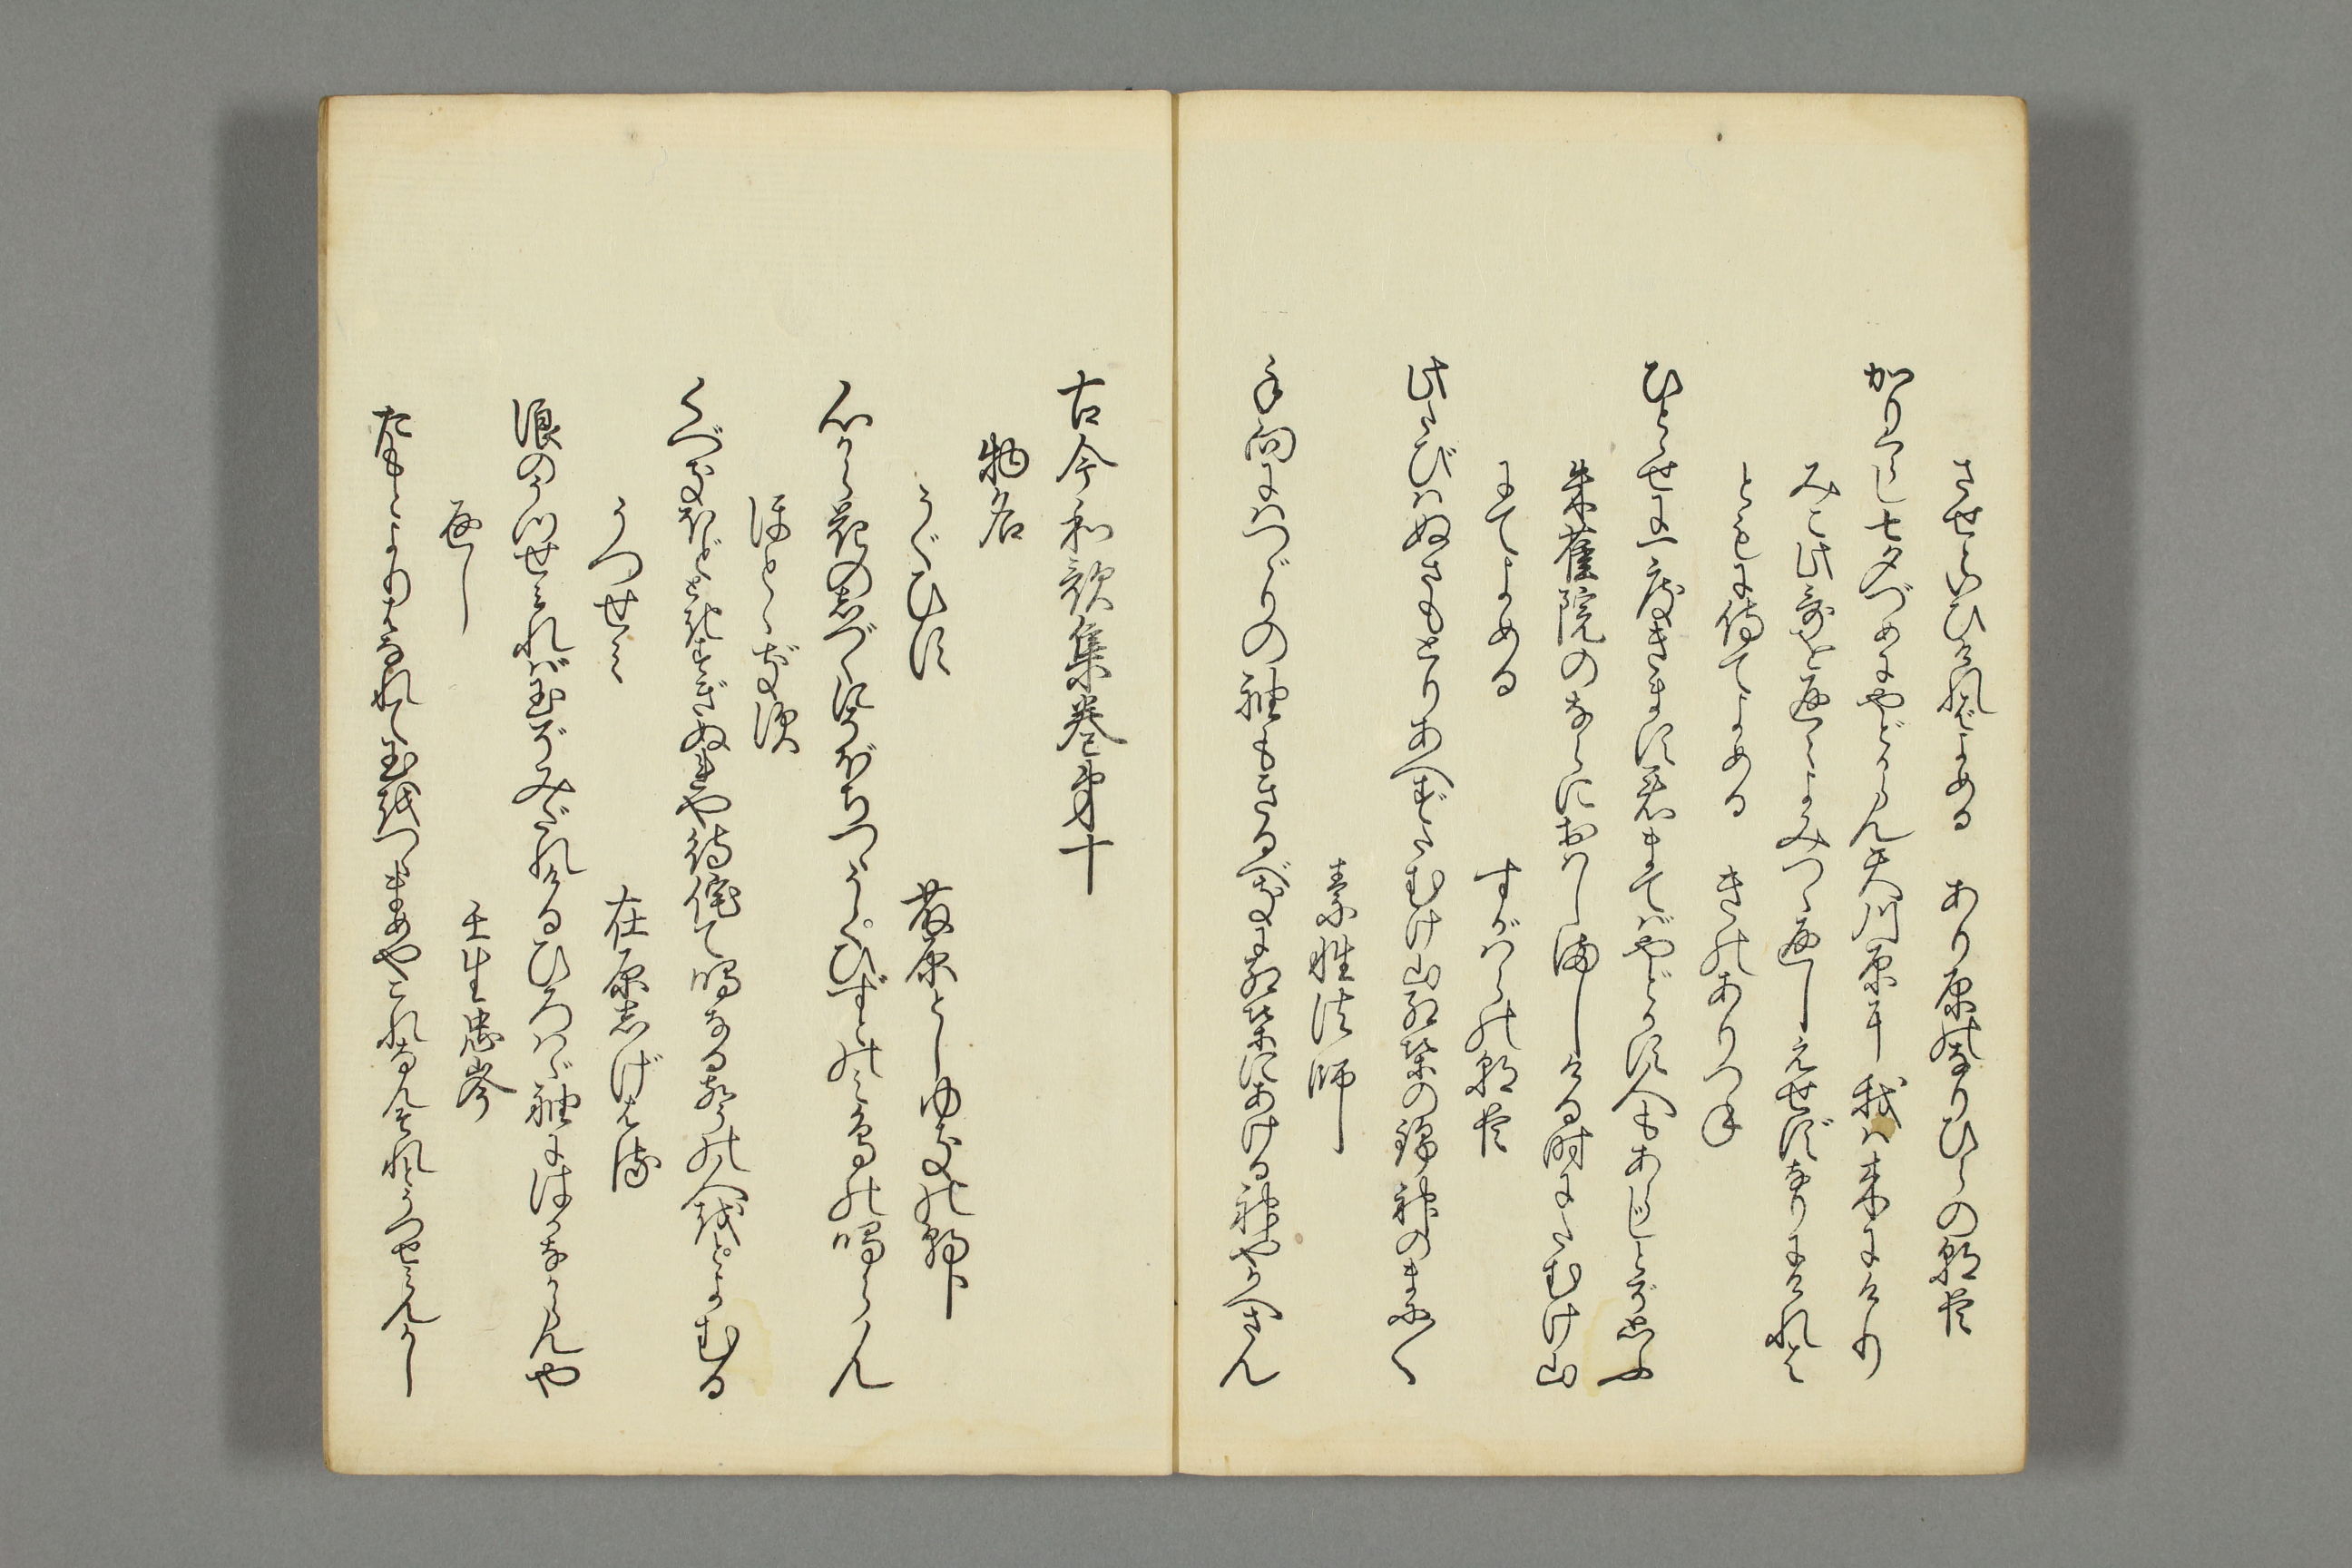 させといひければよめる　あり原のなりひらの朝臣
かりくらし七夕づめにやどからん天川原に我は来にけり
みこ此哥を返々よみつゝ返しえせずなりにければ
ともに侍てよめる　きのありつね
ひとゝせに一度きます君まてばやどかす人もあらじとぞ思ふ
朱雀院のならにおはしましける時にたむけ山
にてよめる　すがはらの朝臣
此たびはぬさもとりあへずたむけ山紅葉の錦神のまに〳〵
素性法師
手向にはつゞりの袖もきるべきに紅葉にあける神やかへさん
古今和歌集巻第十
物名
うぐひす　藤原としゆきの朝臣
心から花のしづくにそぼちつゝうくひずとのみ鳥の鳴らん
ほとゝぎす
くべきほどときすぎぬれや待侘て鳴なる声の人をとよむる
うつせみ　在原しげはる
浪のうつせみれば玉ぞみだれけるひろはゞ袖にはかなからんや
返し　壬生忠岑
たもとよりはなれて玉をつゝまめやこれなんそれとうつせみんかし